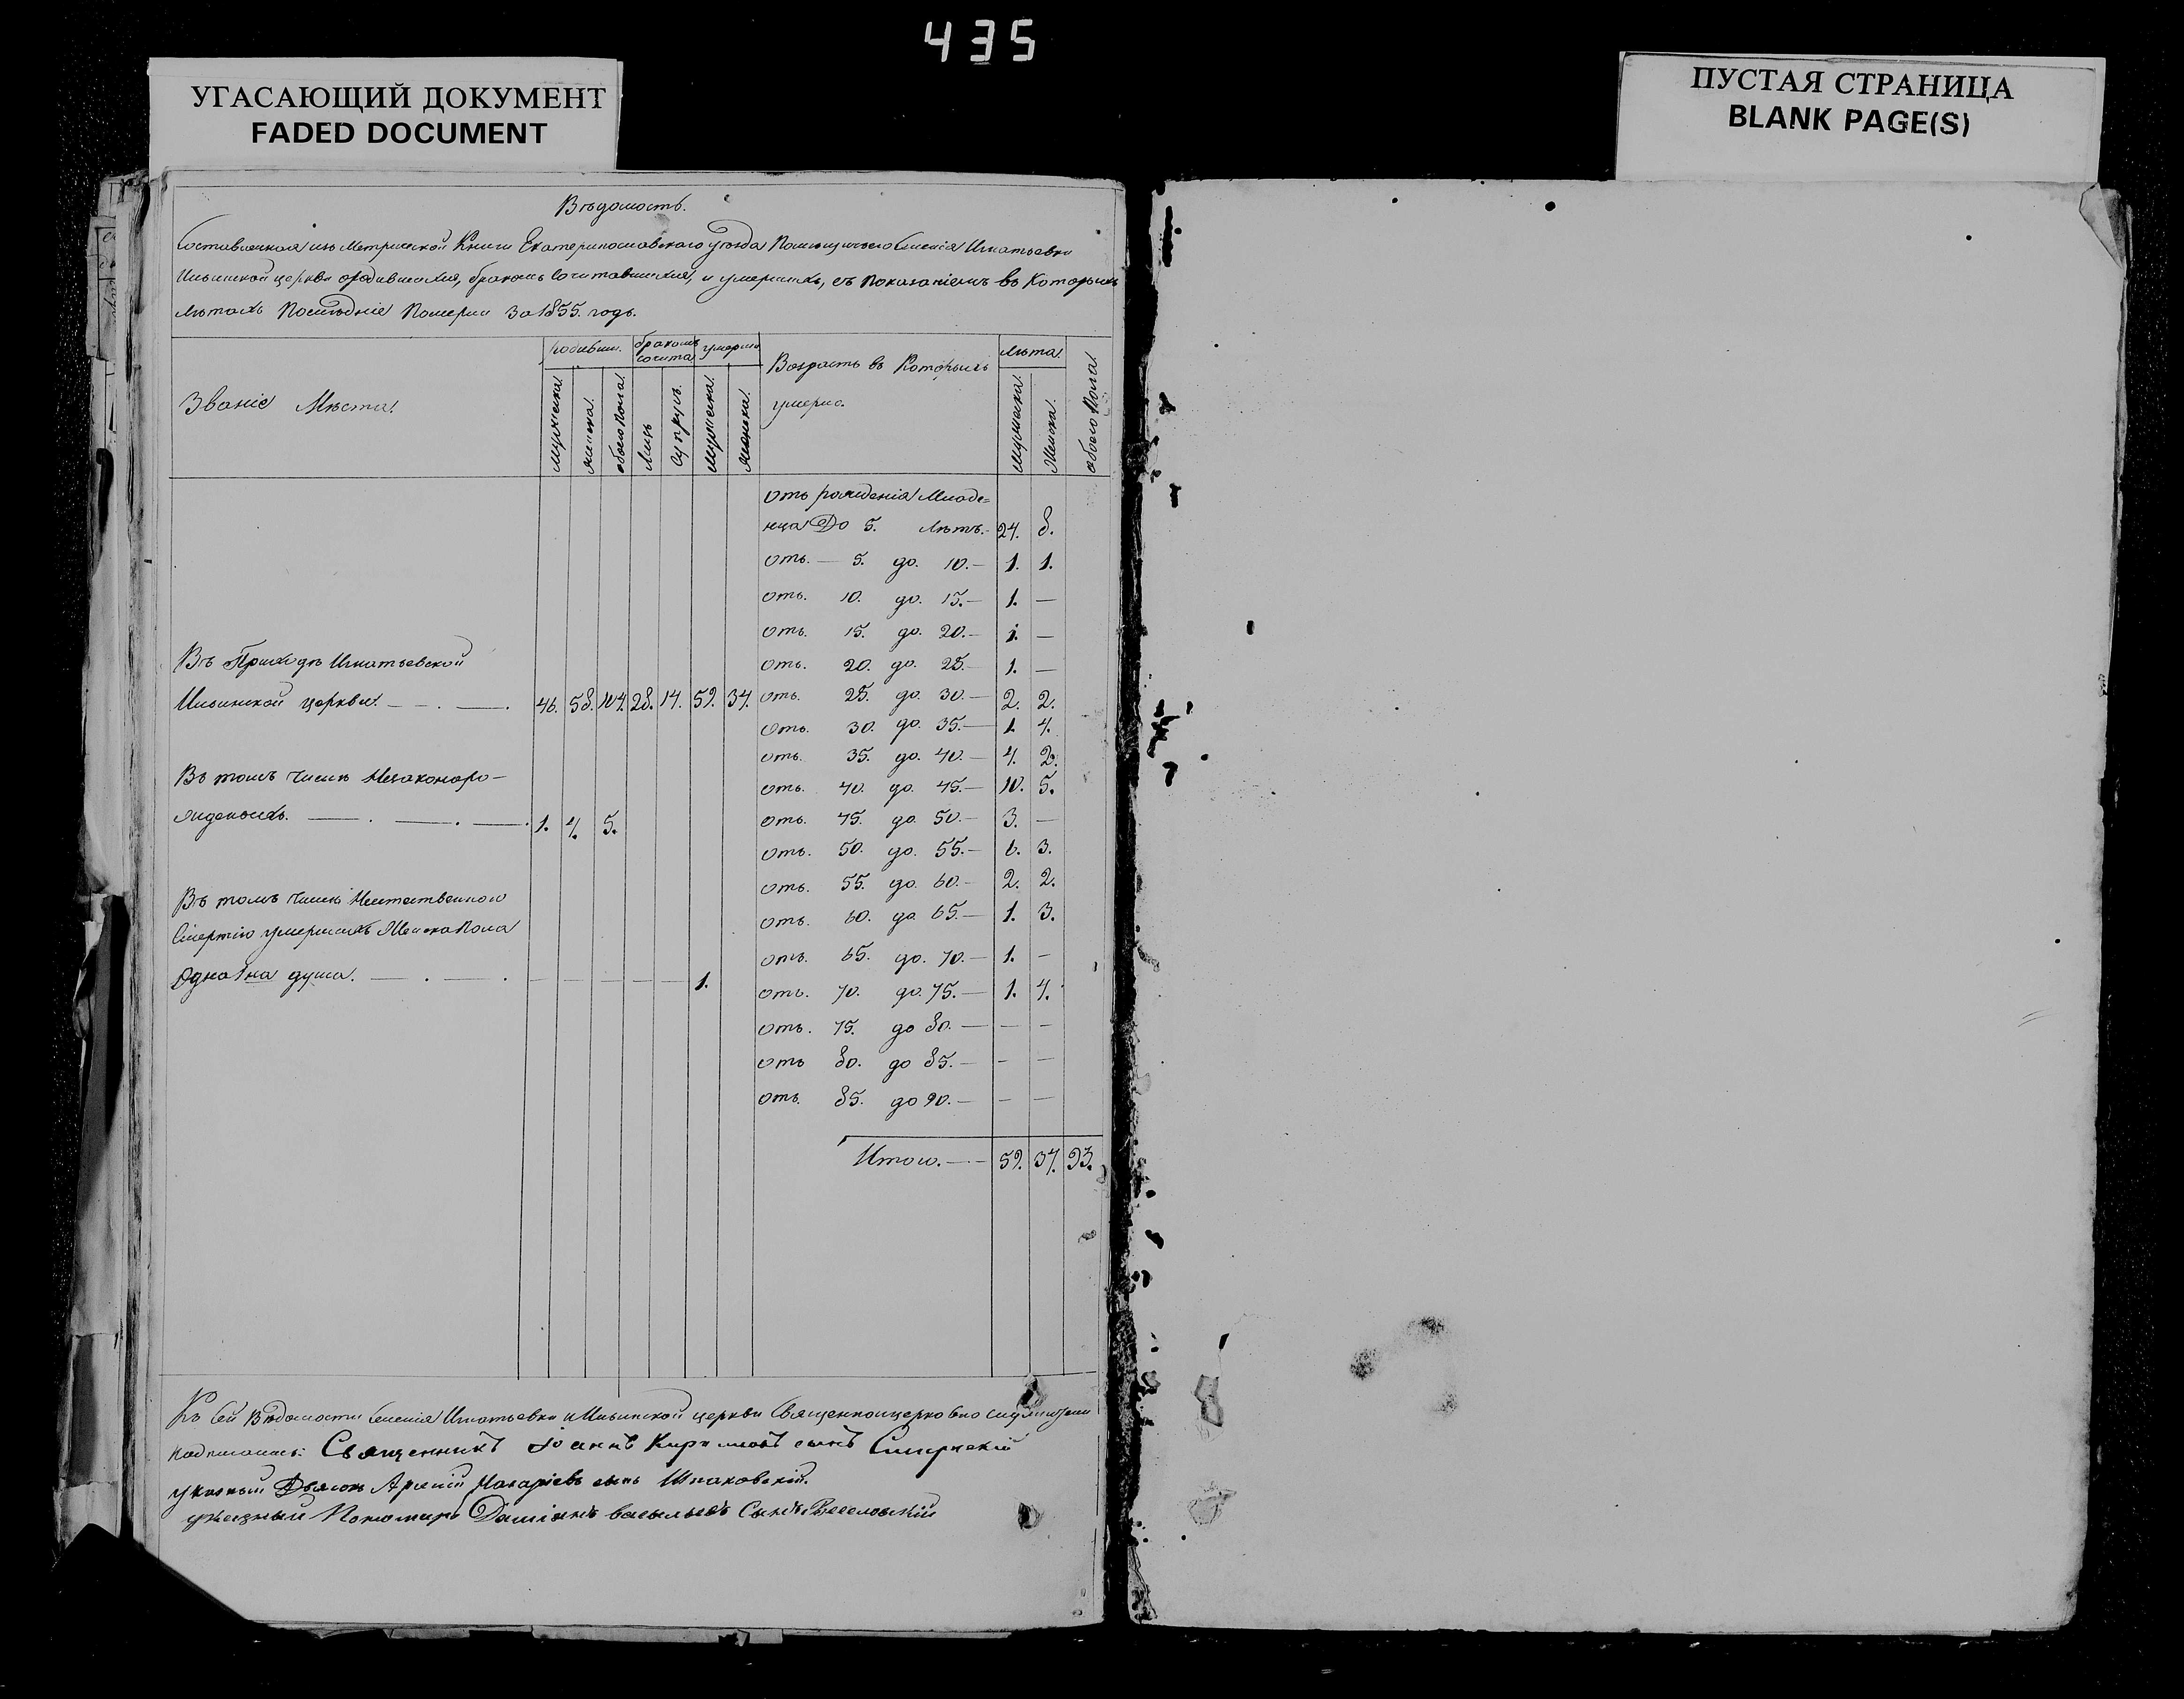 435
УГАСАЮЩИЙ ДОКУМЕНТ
FADED DOCUMENT
ПУСТАЯ СТРАНИЦА
BLANK PAGE(S)
Вѣдомость.
Составленная изъ Метрической Книги Екатеринославскаго уѣзда Помѣщичьяго Селенія Игнатьевки
Ильинской церкви о родившихся, бракомъ Сочитавшихся, и умершихъ, съ показаніемъ въ Которыхъ
лѣтахъ Послѣдніе Померли За 1855. годъ.
Званіе Мѣста.
родивш. бракомъ сочита умерш.
мужеска. женска. обоего пола. Лицъ Супруж. мужеска. женска.
Возрастъ въ Которыхъ
умерло.
лѣта.
мужеска. Женска. обоего Пола.
отъ рожденія Младе=
нца До 5. лѣтъ.- 24. 8.
отъ.— 5. до. 10.— 1. 1.
отъ. 10. до. 15.— 1. —
отъ. 15. до. 20.— 1. —
отъ. 20. до. 25.— 1. —
Въ Приходѣ Игнатьевской
Ильинской церкви. 46. 58. 104. 28. 14. 59. 34.
отъ. 25. до. 30.— 2. 2.
отъ. 30. до. 35.— 1. 4.
отъ. 35. до. 40.— 4. 2.
Въ томъ Числѣ Незаконоро-
жденныхъ. 1. 4. 5.
отъ. 40. до. 45.— 10. 5.
отъ. 45. до. 50.— 3. —
отъ. 50. до. 55.— 6. 3.
отъ. 55. до. 60.— 2. 2.
Въ томъ Числѣ Неестественною
Смертію умершихъ Женска Пола
Одна душа. — — — — — 1.
отъ. 60. до 65.— 1. 3.
отъ. 65. до. 70.— 1. -
отъ. 70. до. 75.— 1. 4.
отъ. 75. до 80. — — -
отъ 80. до 85.— - —
отъ. 85. до 90.— - —
Итого. —- 59. 34. 93.
Къ Сей Вѣдомости Селенія Игнатьевки Ильинской церкви Священноцерковнослужители
подписались: Священникъ Іоаннъ Кириловъ сынъ
указный Дьячокъ Макаріевъ сынъ Шпаковскій.
указный Пономарь Даміанъ васильевъ Сынъ Веселовскій